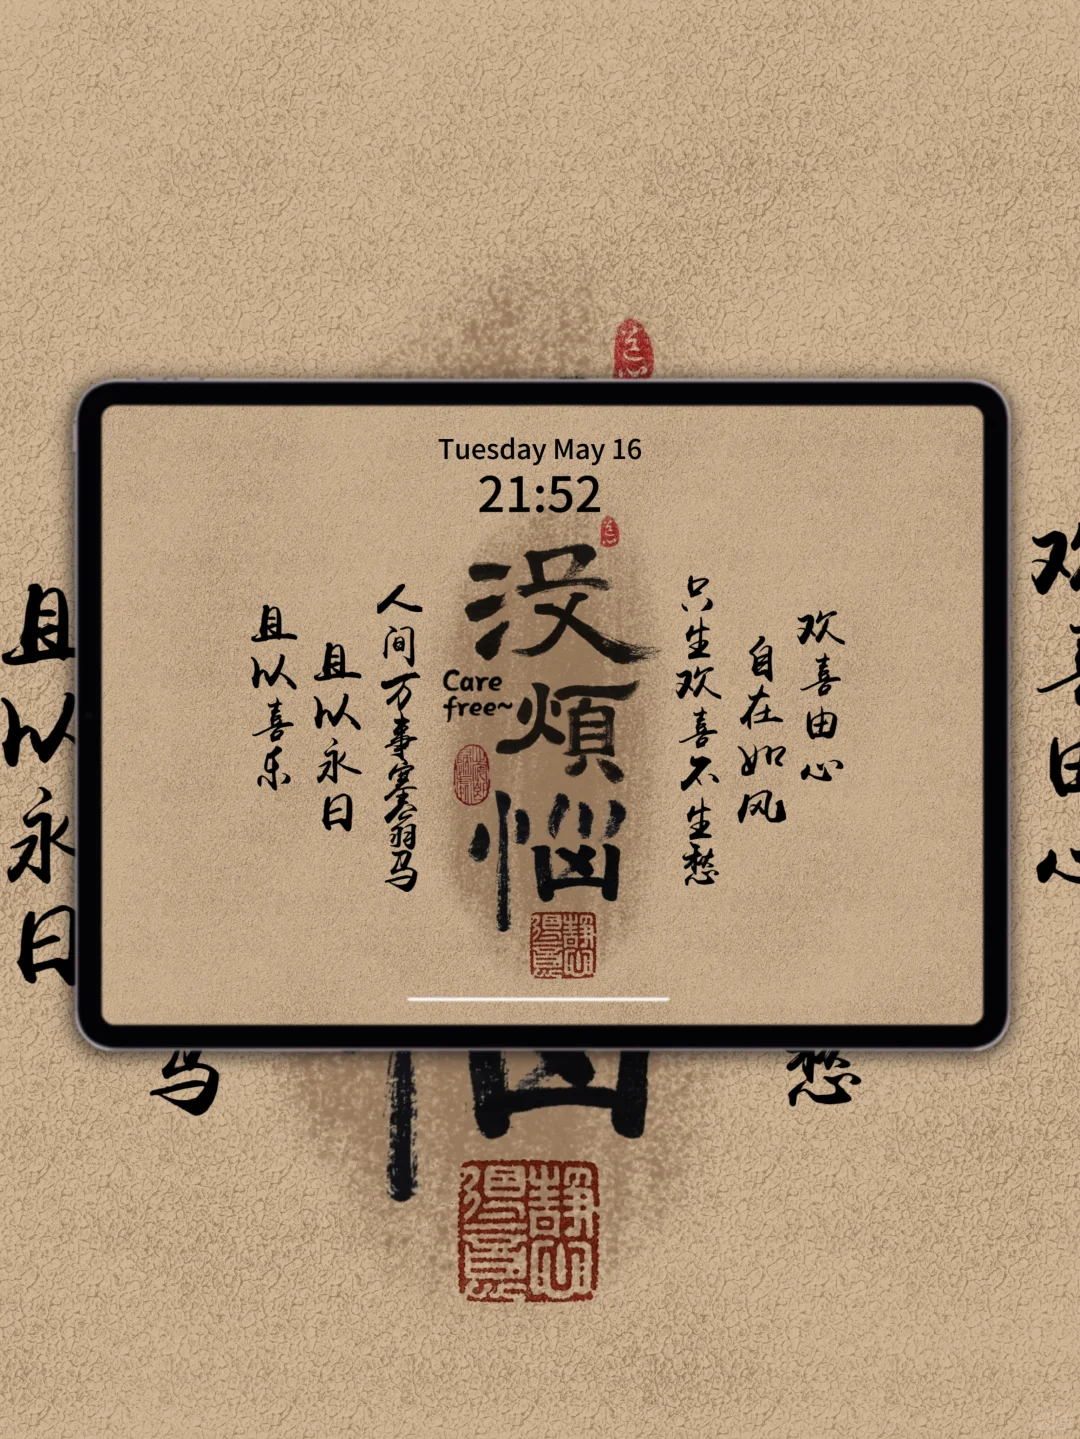 Tuesday May 16
21:52
欢喜由心
自在如风
只生欢喜不生愁
没煩惱
Care
free~
人间万事塞翁马
且以永日
且以喜乐
欢喜由心
愁
马
且以永日